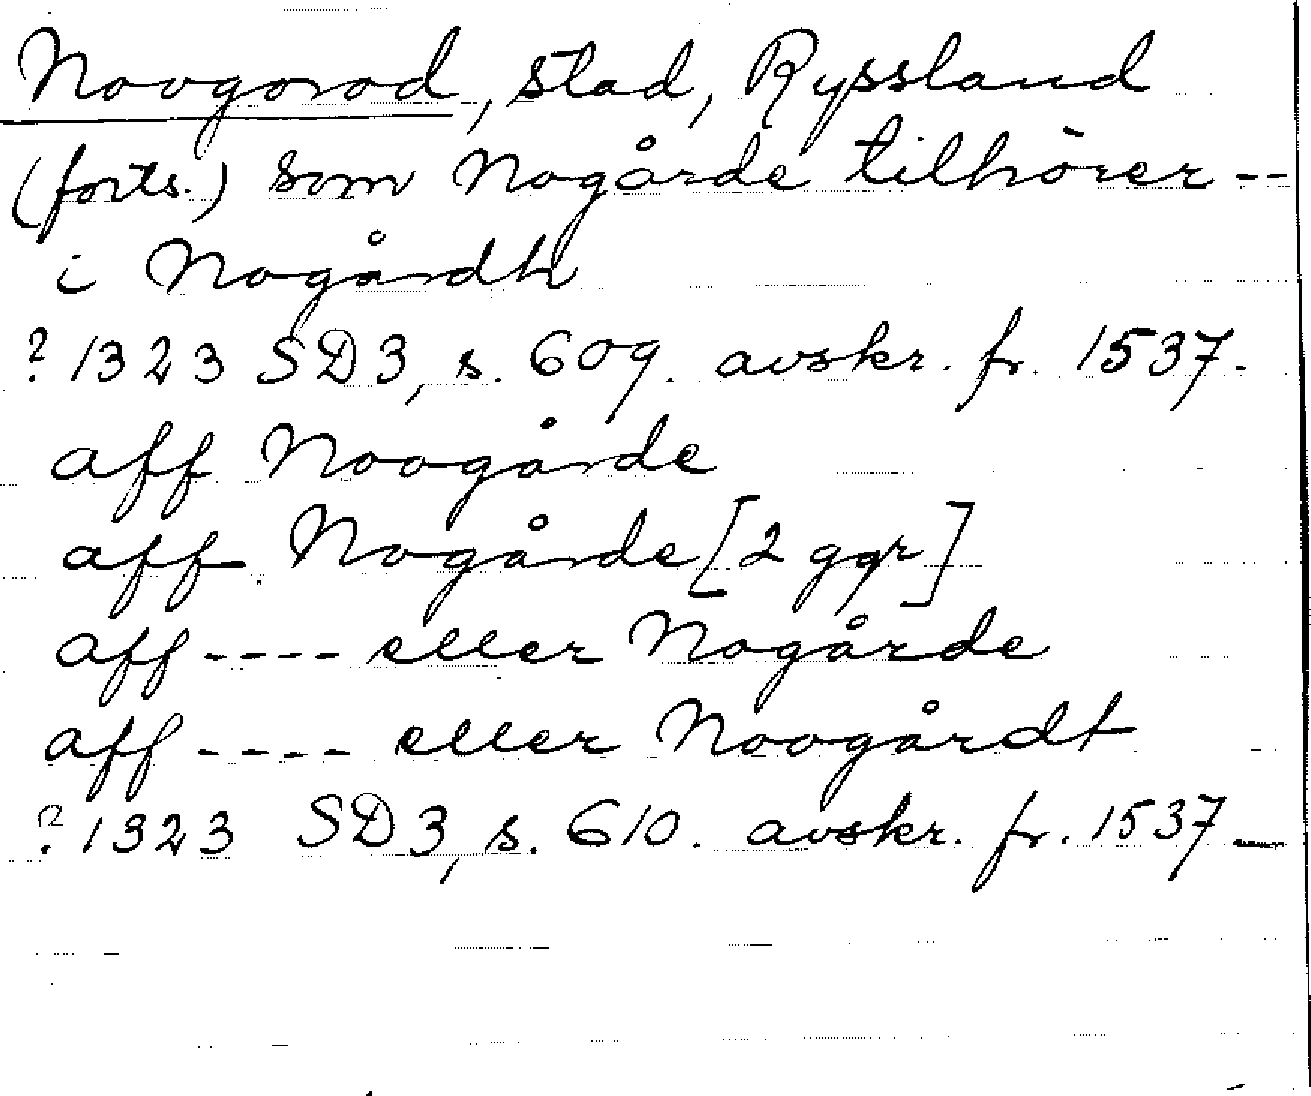 Novgorod, stad, Ryssland
(forts.) som Nogårde tilhörer --
i Nogårdh
? 1323 SD3, s. 609. avskr. fr. 1537.
aff Noogårde
aff Nogårde [2 ggr]
aff ---- eller Nogårde
aff ---- eller Noogårdt
? 1323 SD3, s. 610. avskr. fr. 1537 _